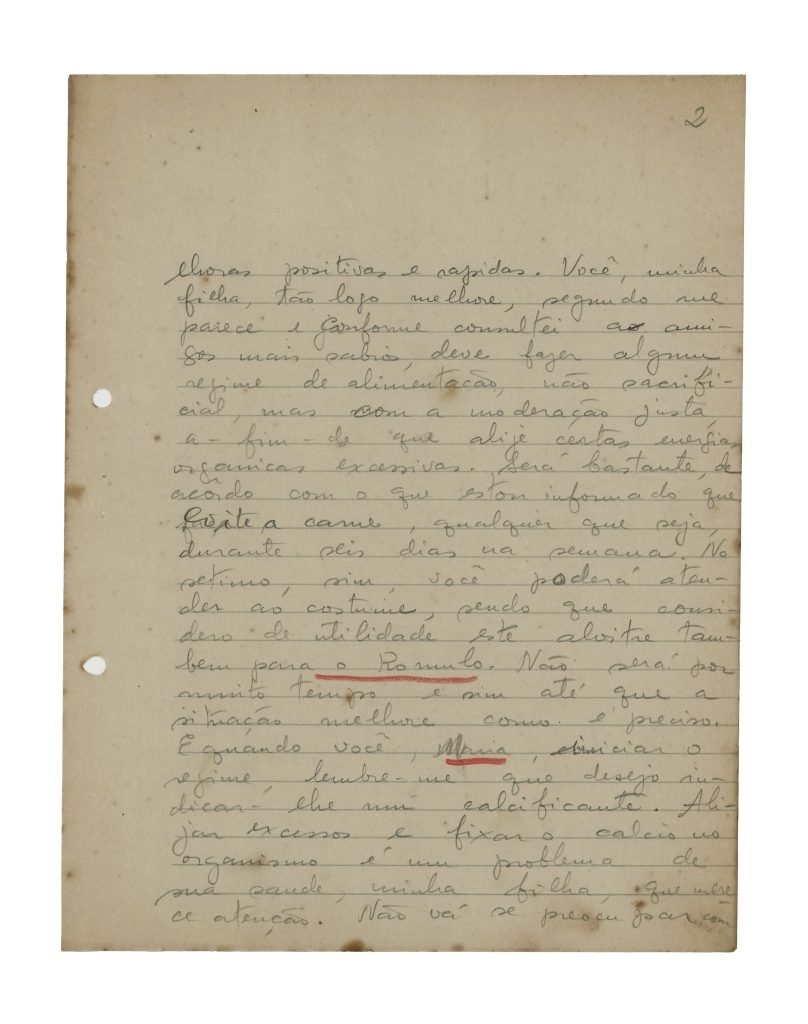 2
lhoras positivas e rapidas. Você, minha
filha, tão logo melhore, segundo me
parece e conforme consultei ao ami-
gos mais sabios, deve fazer algum
regime de alimentação, não sacrifi-
cial, mas com a moderação justa,
a-fim-de que alije certas energias
organicas excessivas. Será bastante, de
acôrdo com o que estou informado que
evite a carne, qualquer que seja,
durante seis dias na semana. No
setimo, sim, você poderá aten-
der ao costume, sendo que consi-
dero de utilidade este alvitre tam-
bem para o Romulo. Não será por
muito tempo e sim até que a
situação melhore como é preciso.
E quando você, iniciar o
regime, lembre-me que desejo in-
dicar-lhe um calcificante. Ali-
jar excessos e fixar o calcio no
organismo é um problema de
sua saude, minha filha, que mere-
ce atenção. Não vá se preocupar com